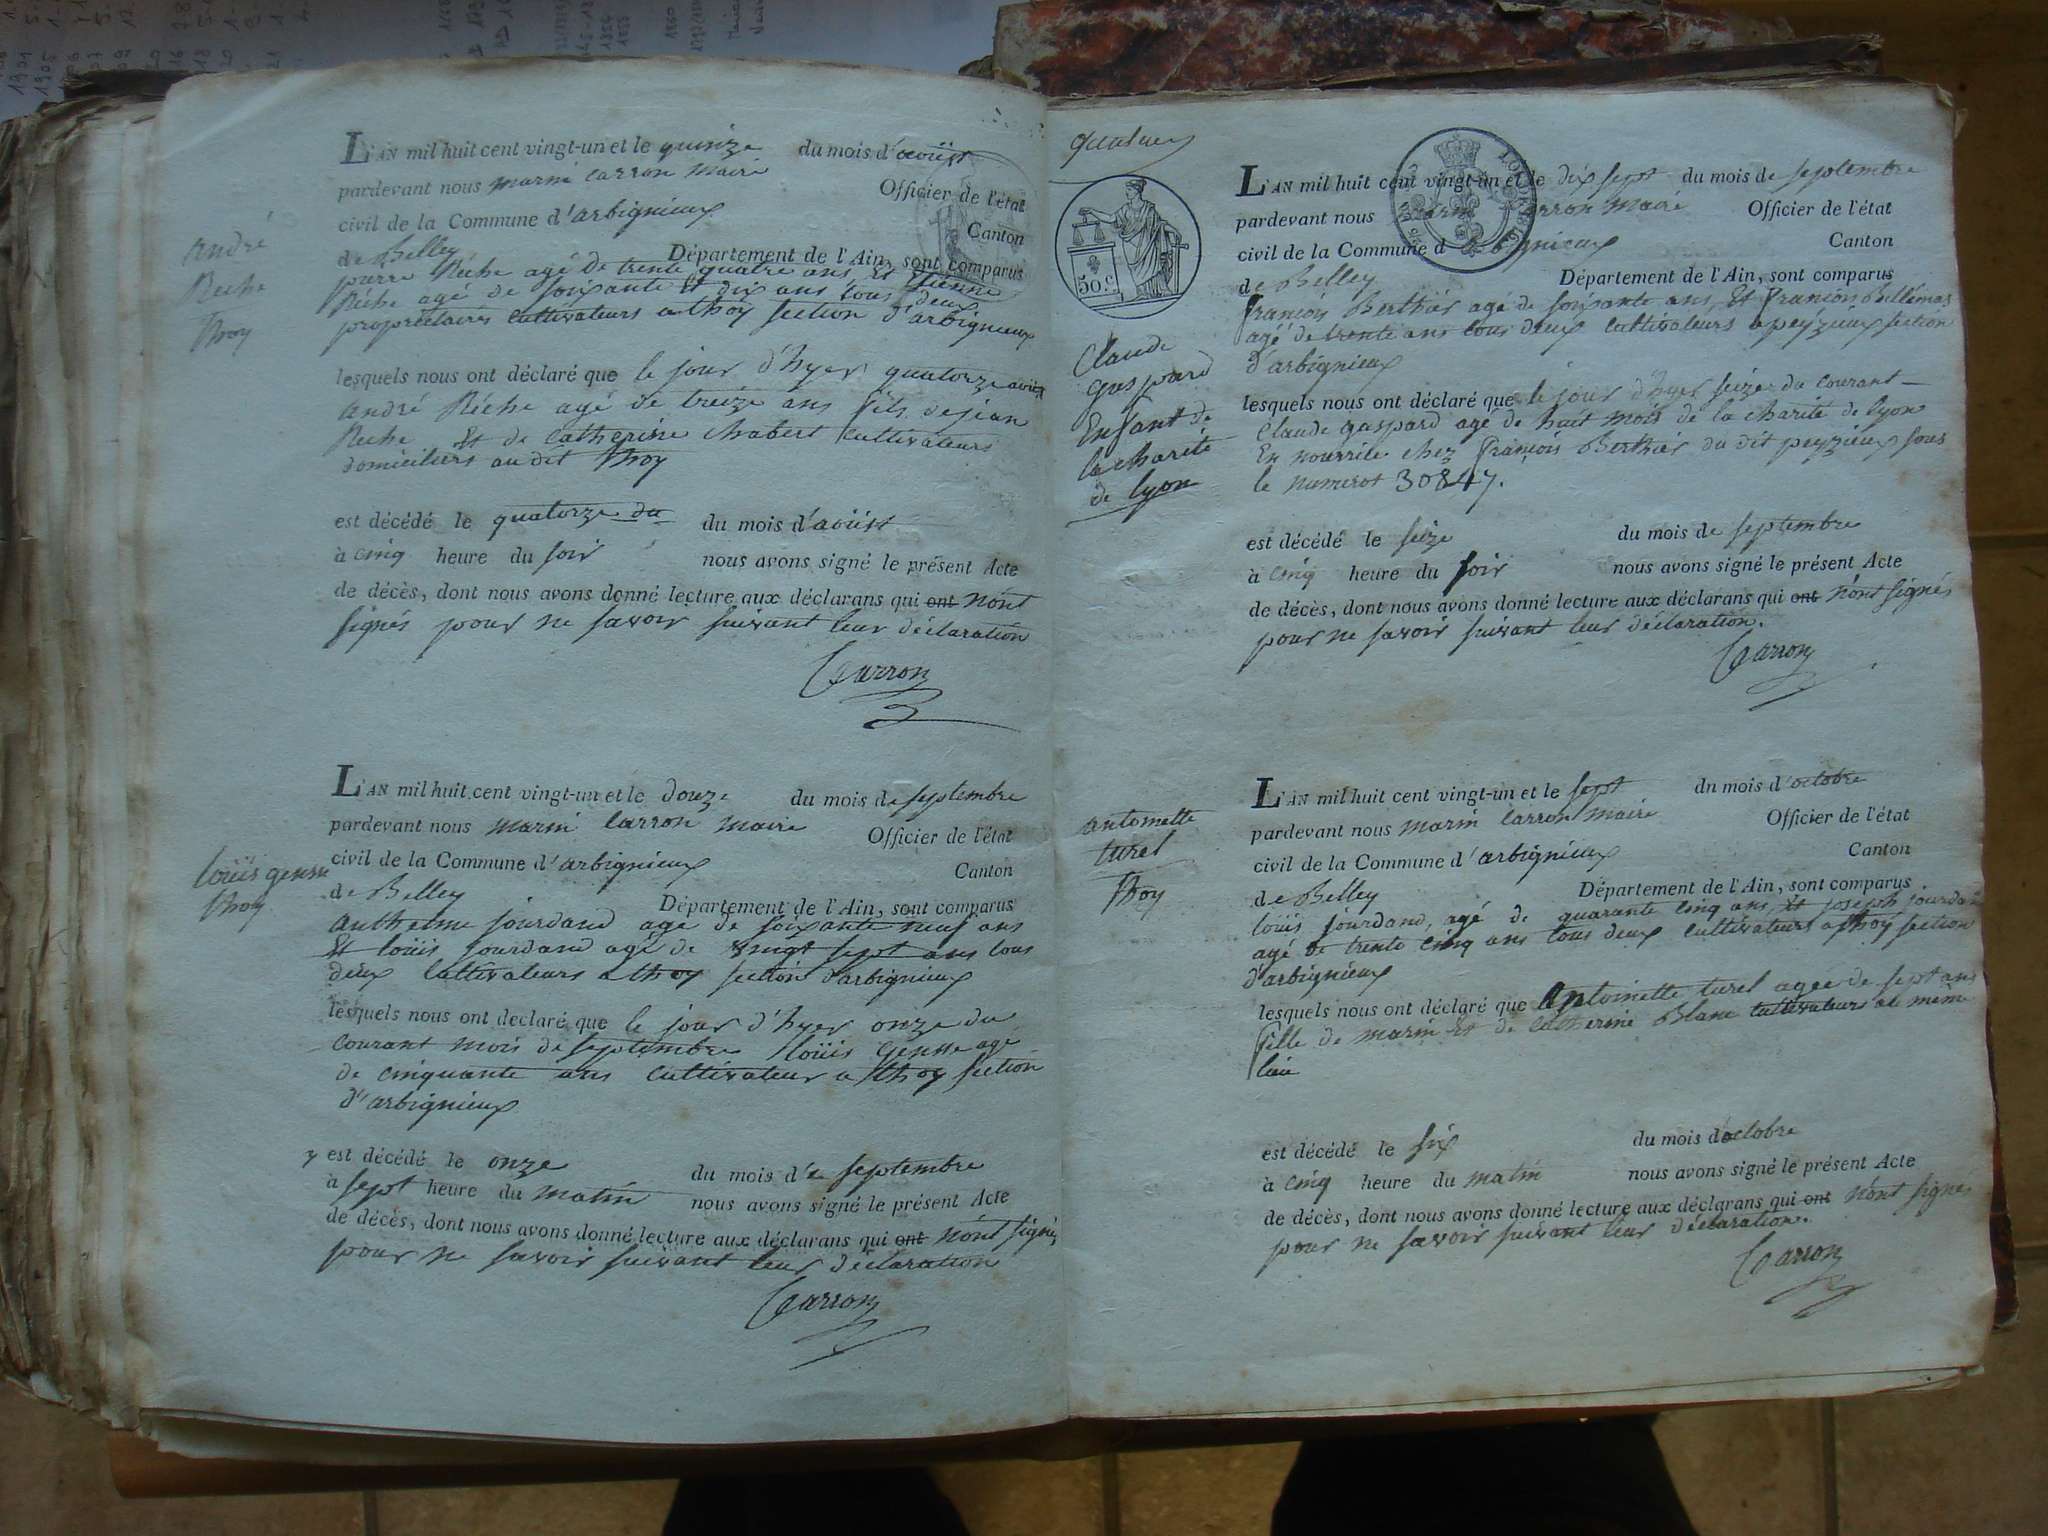 L'AN mil huit cent vingt-un et le quinze du mois d'aoüst
pardevant nous marin carron maire Officier de l'état
civil de la Commune d'arbignieux Canton
de Belley Département de l'Ain, sont comparus
pierre Réche agé de trente quatre ans Et Etienne
Réche agé de soixante Et dix ans tous deux
propriétaires cultivateurs a thoy section d'arbignieux
andré
Reche
thoy
lesquels nous ont déclaré que le jour d'hyer quatorze aoüst
andré Réche agé de treize ans fils de jean
Reche Et de catherine chabert cultivateurs
domiciliers au dit thoy
est décédé le quatorze du du mois d'aoüst
à cinq heure du soir nous avons signé le présent Acte
de décès, dont nous avons donné lecture aux déclarans qui ont n'ont
signés pour ne savoir suivant leur déclaration
Carron
L'AN mil huit cent vingt-un et le douze du mois de septembre
pardevant nous marin Carron maire Officier de l'état
civil de la Commune d'arbignieux Canton
de Belley Département de l'Ain, sont comparus
anthelme jourdand agé de soixante neuf ans
Et loüis jourdand agé de vingt sept ans tous
deux Cultivateurs a thoy section d'arbignieux
loüis gensse
thoy
lesquels nous ont déclaré que le jour d'hyer onze du
courant mois de septembre loüis gensse agé
de cinquante ans cultivateur a thoy section
d'arbignieux
y est décédé le onze du mois d'e septembre
à sept heure du matin nous avons signé le présent Acte
de décès, dont nous avons donné lecture aux déclarans qui ont n'ont signés
pour ne savoir suivant leur déclaration
Carron
50 c.
L'AN mil huit cent vingt-un et le dix sept du mois de septembre
pardevant nous marin carron maire Officier de l'état
civil de la Commune d'arbignieux Canton
de Belley Département de l'Ain, sont comparus
françois Berthier agé de soixante ans Et françois Bellemas
agé de trente ans tous deux cultivateurs a peyzieux section
d'arbignieux
Claude
gaspard
Enfant de
la charité
de lyon
lesquels nous ont déclaré que le jour d'hyer seize du courant
Claude gaspard agé de huit mois de la charité de lyon
En nourrice chez françois Berthier du dit peyzieux sous
le numerot 30847.
est décédé le seize du mois de septembre
à cinq heure du soir nous avons signé le présent Acte
de décès, dont nous avons donné lecture aux déclarans qui ont n'ont signés
pour ne savoir suivant leur déclaration.
Carron
L'AN mil huit cent vingt-un et le sept du mois d'octobre
pardevant nous marin Carron maire Officier de l'état
civil de la Commune d'arbignieux Canton
de Belley Département de l'Ain, sont comparus
loüis jourdand, agé de quarante cinq ans Et joseph jourdan
agé de trente cinq ans tous deux cultivateurs a thoy section
d'arbignieux
antoinette
turel
thoy
lesquels nous ont déclaré que Antoinette turel agée de sept ans
fille de marin Et de Catherine Blanc cultivateurs au même
lieu
est décédé le six du mois d'octobre
à cinq heure du matin nous avons signé le présent Acte
de décès, dont nous avons donné lecture aux déclarans qui ont n'ont signés
pour ne savoir suivant leur déclaration.
Carron